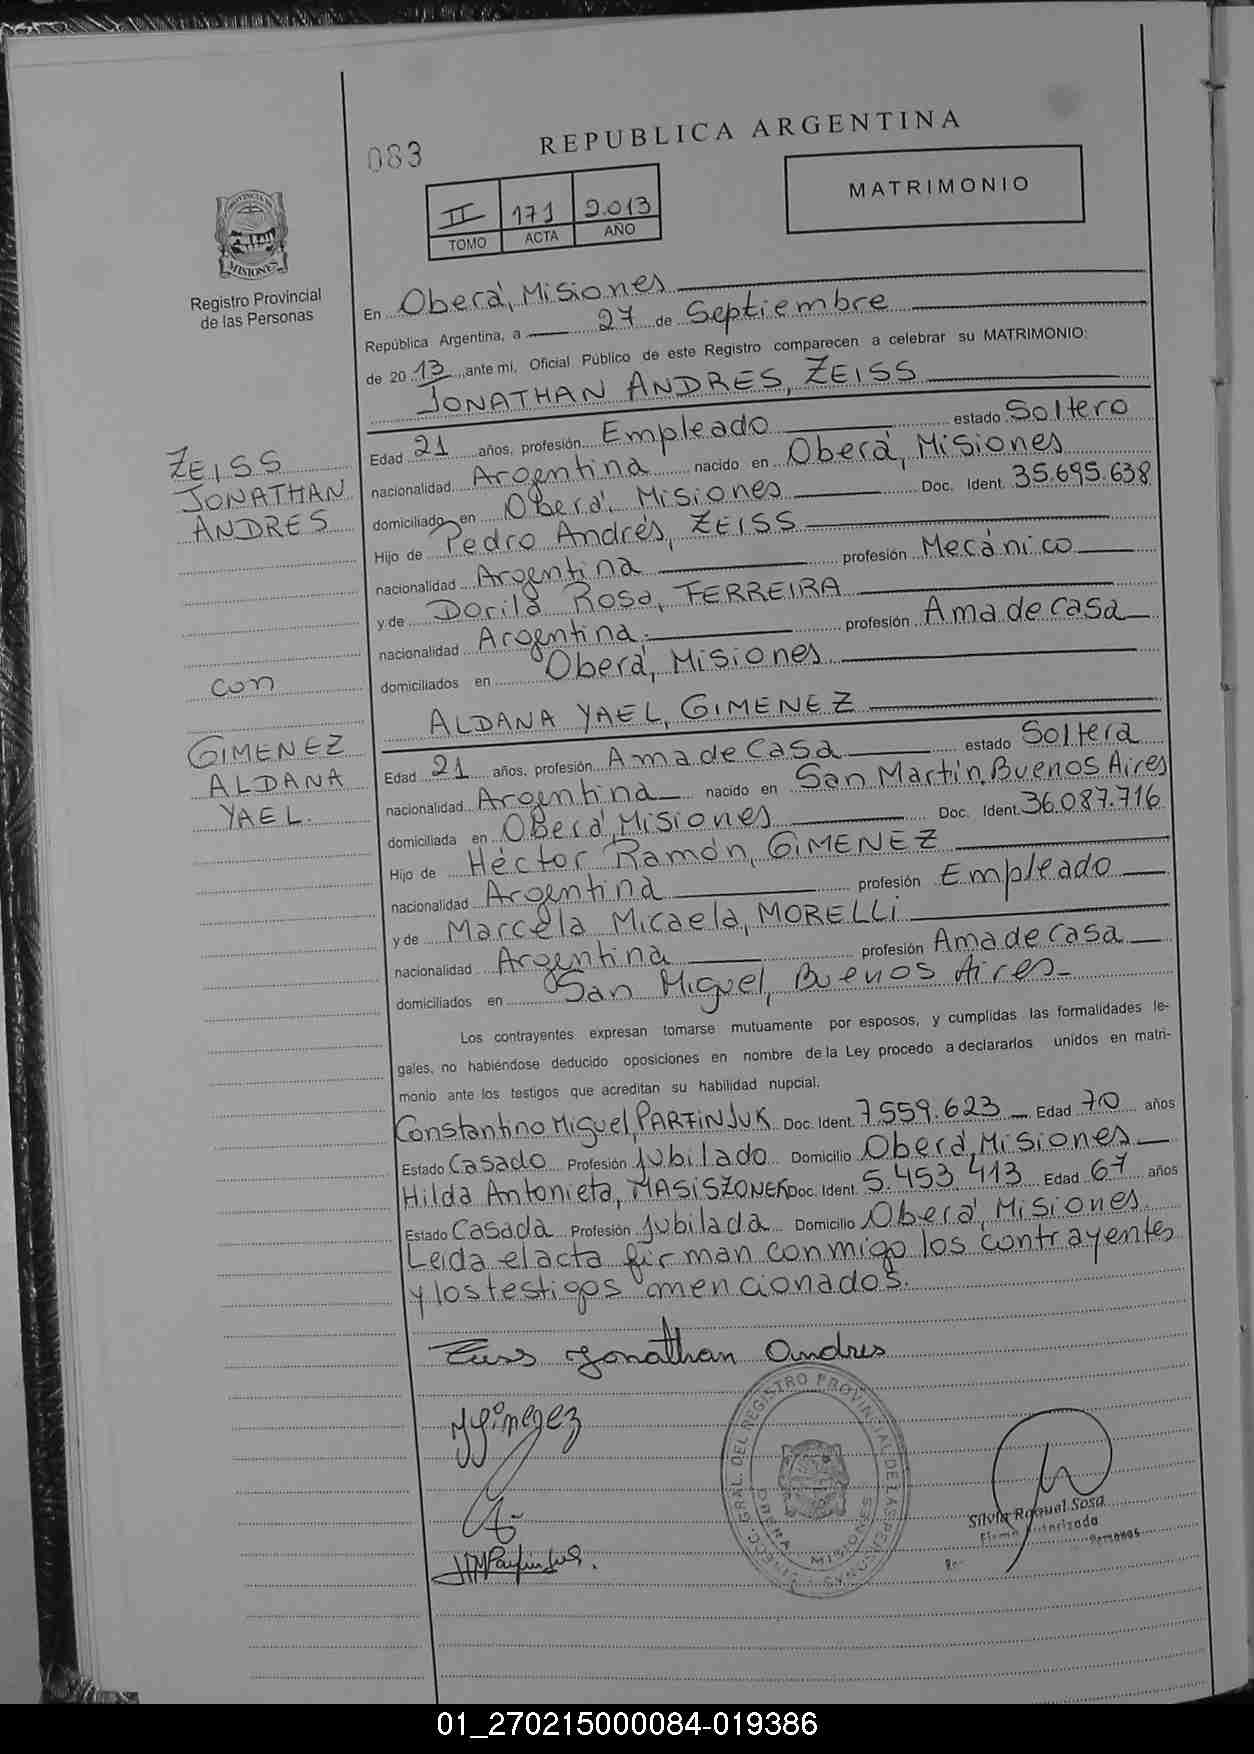 083
REPUBLICA ARGENTINA
II 171 2.013
TOMO ACTA AÑO
MATRIMONIO
PROVINCIA DE
MISIONES
Registro Provincial
de las Personas
En Oberá, Misiones
República Argentina, a 27 de Septiembre
de 2013, ante mí, Oficial Público de este Registro comparecen a celebrar su MATRIMONIO:
JONATHAN ANDRES, ZEISS
Edad 21 años, profesión Empleado estado Soltero
nacionalidad Argentina nacido en Oberá, Misiones
domiciliado en Oberá, Misiones Doc. Ident. 35.695.638
Hijo de Pedro Andrés, ZEISS
nacionalidad Argentina profesión Mecánico
y de Dorila Rosa, FERREIRA
nacionalidad Argentina. profesión Ama de casa
domiciliados en Oberá, Misiones
ZEISS
JONATHAN
ANDRES
con
GIMENEZ
ALDANA
YAEL.
ALDANA YAEL, GIMENEZ
Edad 21 años, profesión Ama de Casa estado Soltera
nacionalidad Argentina nacido en San Martín, Buenos Aires
domiciliada en Oberá, Misiones Doc. Ident. 36.087.716
Hijo de Héctor Ramón, GIMENEZ
nacionalidad Argentina profesión Empleado
y de Marcela Micaela, MORELLI
nacionalidad Argentina profesión Ama de casa
domiciliados en San Miguel, Buenos Aires
Los contrayentes expresan tomarse mutuamente por esposos, y cumplidas las formalidades le-
gales, no habiéndose deducido oposiciones en nombre de la Ley procedo a declararlos unidos en matri-
monio ante los testigos que acreditan su habilidad nupcial.
Constantino Miguel, PARFINJUK Doc. Ident. 7.559.623 Edad 70 años
Estado Casado Profesión Jubilado Domicilio Oberá, Misiones
Hilda Antonieta, MASISZONEK Doc. Ident. 5.453 413 Edad 67 años
Estado Casada Profesión Jubilada Domicilio Oberá, Misiones
Leida el acta firman conmigo los contrayentes
y los testigos mencionados.
Zeiss Jonathan Andres
YGimenez
DIRECC. GRAL. DEL REGISTRO PROVINCIAL DE LAS PERSONAS
OBERA MISIONES
Silvia Raquel Sosa
Firma Autorizada
Personas
01_270215000084-019386